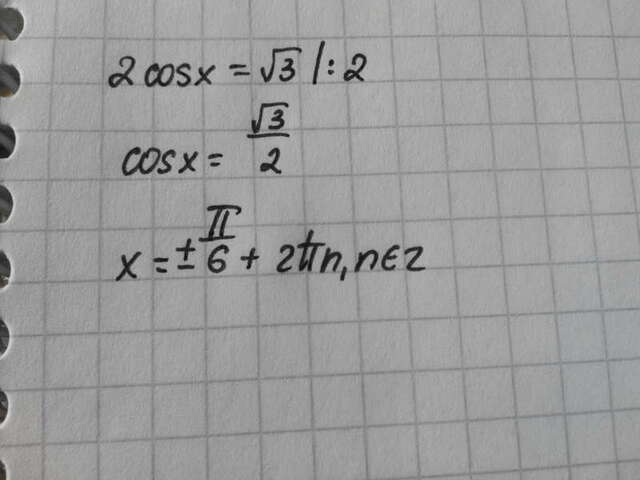 2 cosx = √3 /: 2
cosx = √3/2
x = ± π/6 + 2πn, n∈z